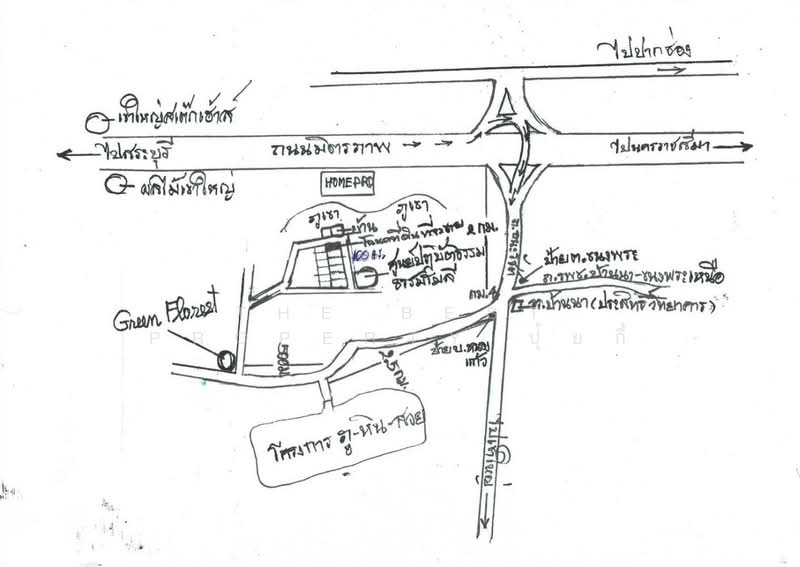 ไปปากช่อง
เขาใหญ่สเต๊กเฮ้าส์
ไปสระบุรี
ถนนมิตรภาพ
ไปนครราชสีมา
ผลไม้เขาใหญ่
HOMEPRO
ภูเขา
ภูเขา
บ้าน
2 กม.
100 ม.
ศูนย์ปฏิบัติธรรม
ถ.ธนะรัชต์
ป้าย ต.ขนงพระ
ถ.รพช.บ้านนา-ขนงพระเหนือ
กม.4
ร.ร.บ้านนา (ประสิทธิ์วิทยาคาร)
Green Florest
THE BEST
PROPERTY
500 ม.
2.5 กม.
โครงการ ภู-หิน-สวย
ไปเขาใหญ่